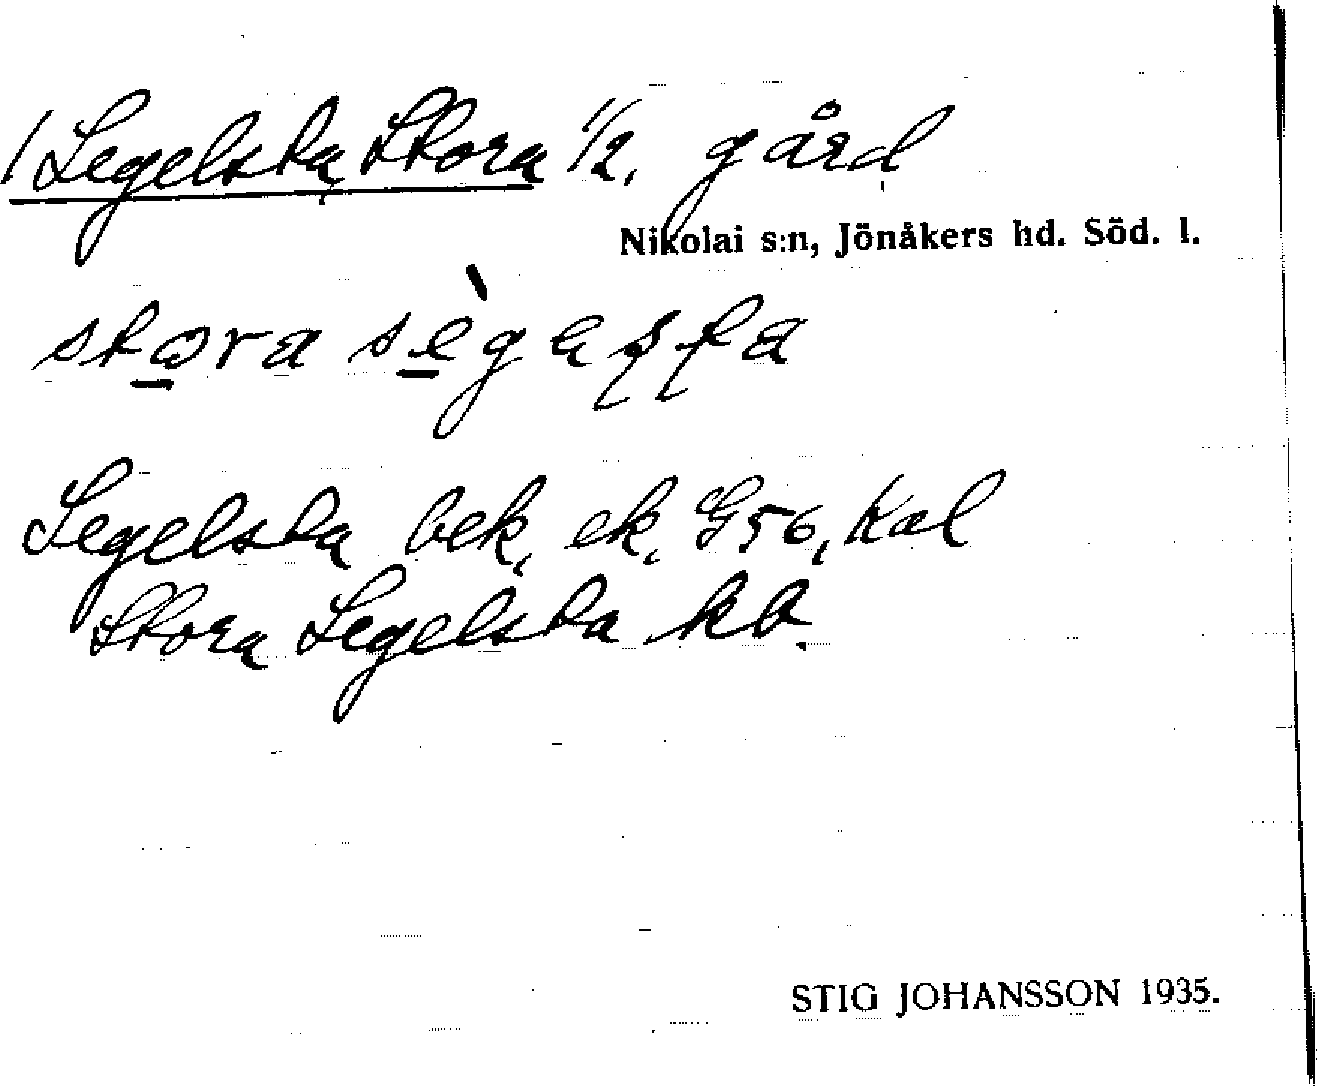 / Segelsta, Stora 1/2, gård
Nikolai s:n, Jönåkers hd. Söd. l.
stora sègaʂʈa
Segelsta bek, ek, G56, Kal
Stora Segelsta kb.
STIG JOHANSSON 1935.